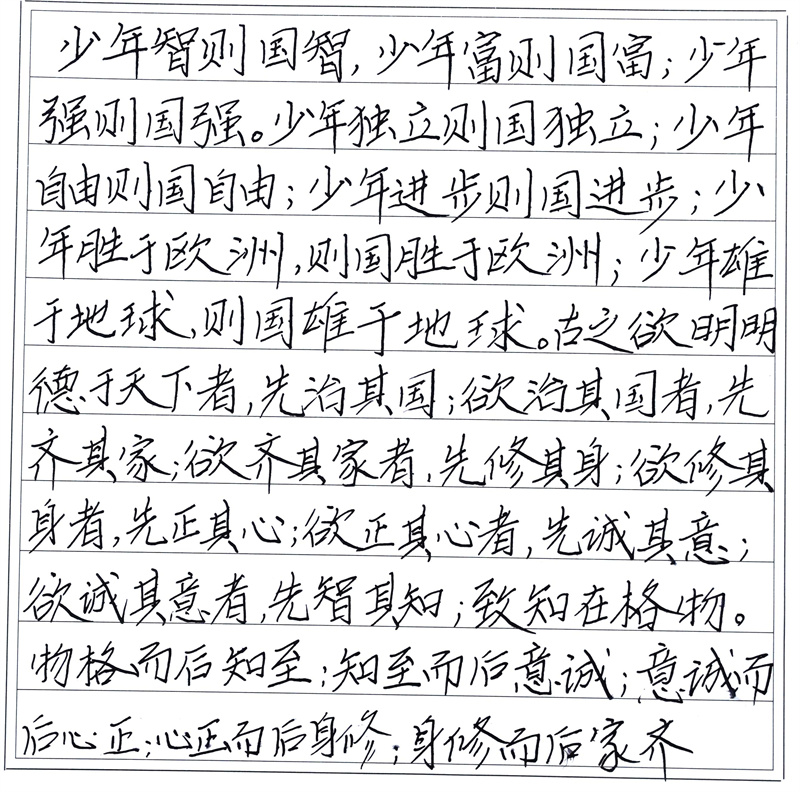 少年智则国智，少年富则国富；少年
强则国强。少年独立则国独立；少年
自由则国自由；少年进步则国进步；少
年胜于欧洲，则国胜于欧洲；少年雄
于地球，则国雄于地球。古之欲明明
德于天下者，先治其国；欲治其国者，先
齐其家；欲齐其家者，先修其身；欲修其
身者，先正其心；欲正其心者，先诚其意；
欲诚其意者，先智其知；致知在格物。
物格而后知至；知至而后意诚；意诚而
后心正；心正而后身修；身修而后家齐